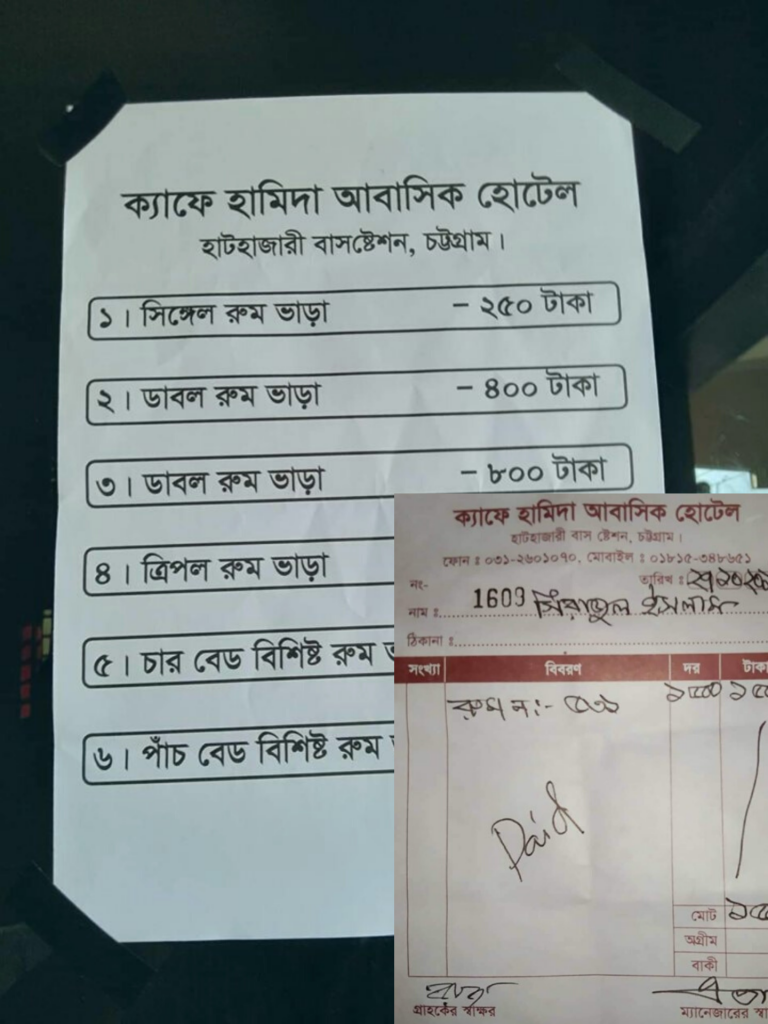 ক্যাফে হামিদা আবাসিক হোটেল
হাটহাজারী বাসষ্টেশন, চট্টগ্রাম।
১। সিঙ্গেল রুম ভাড়া - ২৫০ টাকা
২। ডাবল রুম ভাড়া - ৪০০ টাকা
৩। ডাবল রুম ভাড়া - ৮০০ টাকা
৪। ত্রিপল রুম ভাড়া
৫। চার বেড বিশিষ্ট রুম
৬। পাঁচ বেড বিশিষ্ট রুম
ক্যাফে হামিদা আবাসিক হোটেল
হাটহাজারী বাস ষ্টেশন, চট্টগ্রাম।
ফোন ঃ ০৩১-২৬০১০৭০, মোবাইল ঃ ০১৮১৫-৩৪৮৬৫১
নং- 1609 তারিখ ঃ
নাম ঃ সিরাজুল ইসলাম
ঠিকানা ঃ
সংখ্যা বিবরণ দর টাকা
রুম নং:- ১৫০০
Paid
মোট
অগ্রীম
বাকী
গ্রাহকের স্বাক্ষর ম্যানেজারের